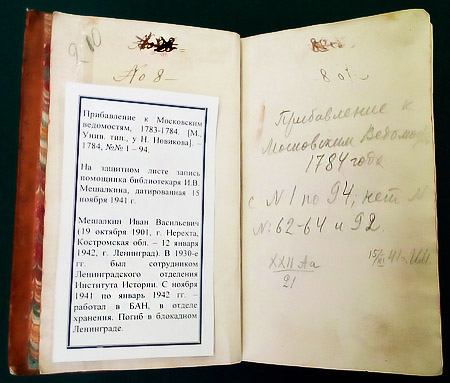 9 10
No 8 –
Прибавление к Московским
ведомостям, 1783-1784. [М.,
Унив. тип., у Н. Новикова]. –
1784, №№ 1 – 94.
На защитном листе запись
помощника библиотекаря И.В.
Мешалкина, датированная 15
ноября 1941 г.
Мешалкин Иван Васильевич
(19 октября 1901, г. Нерехта,
Костромская обл. – 12 января
1942, г. Ленинград). В 1930-е
гг. был сотрудником
Ленинградского отделения
Института Истории. С ноября
1941 по январь 1942 гг. –
работал в БАН, в отделе
хранения. Погиб в блокадном
Ленинграде.
Прибавление к
Московским Ведомо
1784 года
с № 1 по 94; нет №
№: 62-64 и 92.
XXII Аа
21
15/XI 41 г.